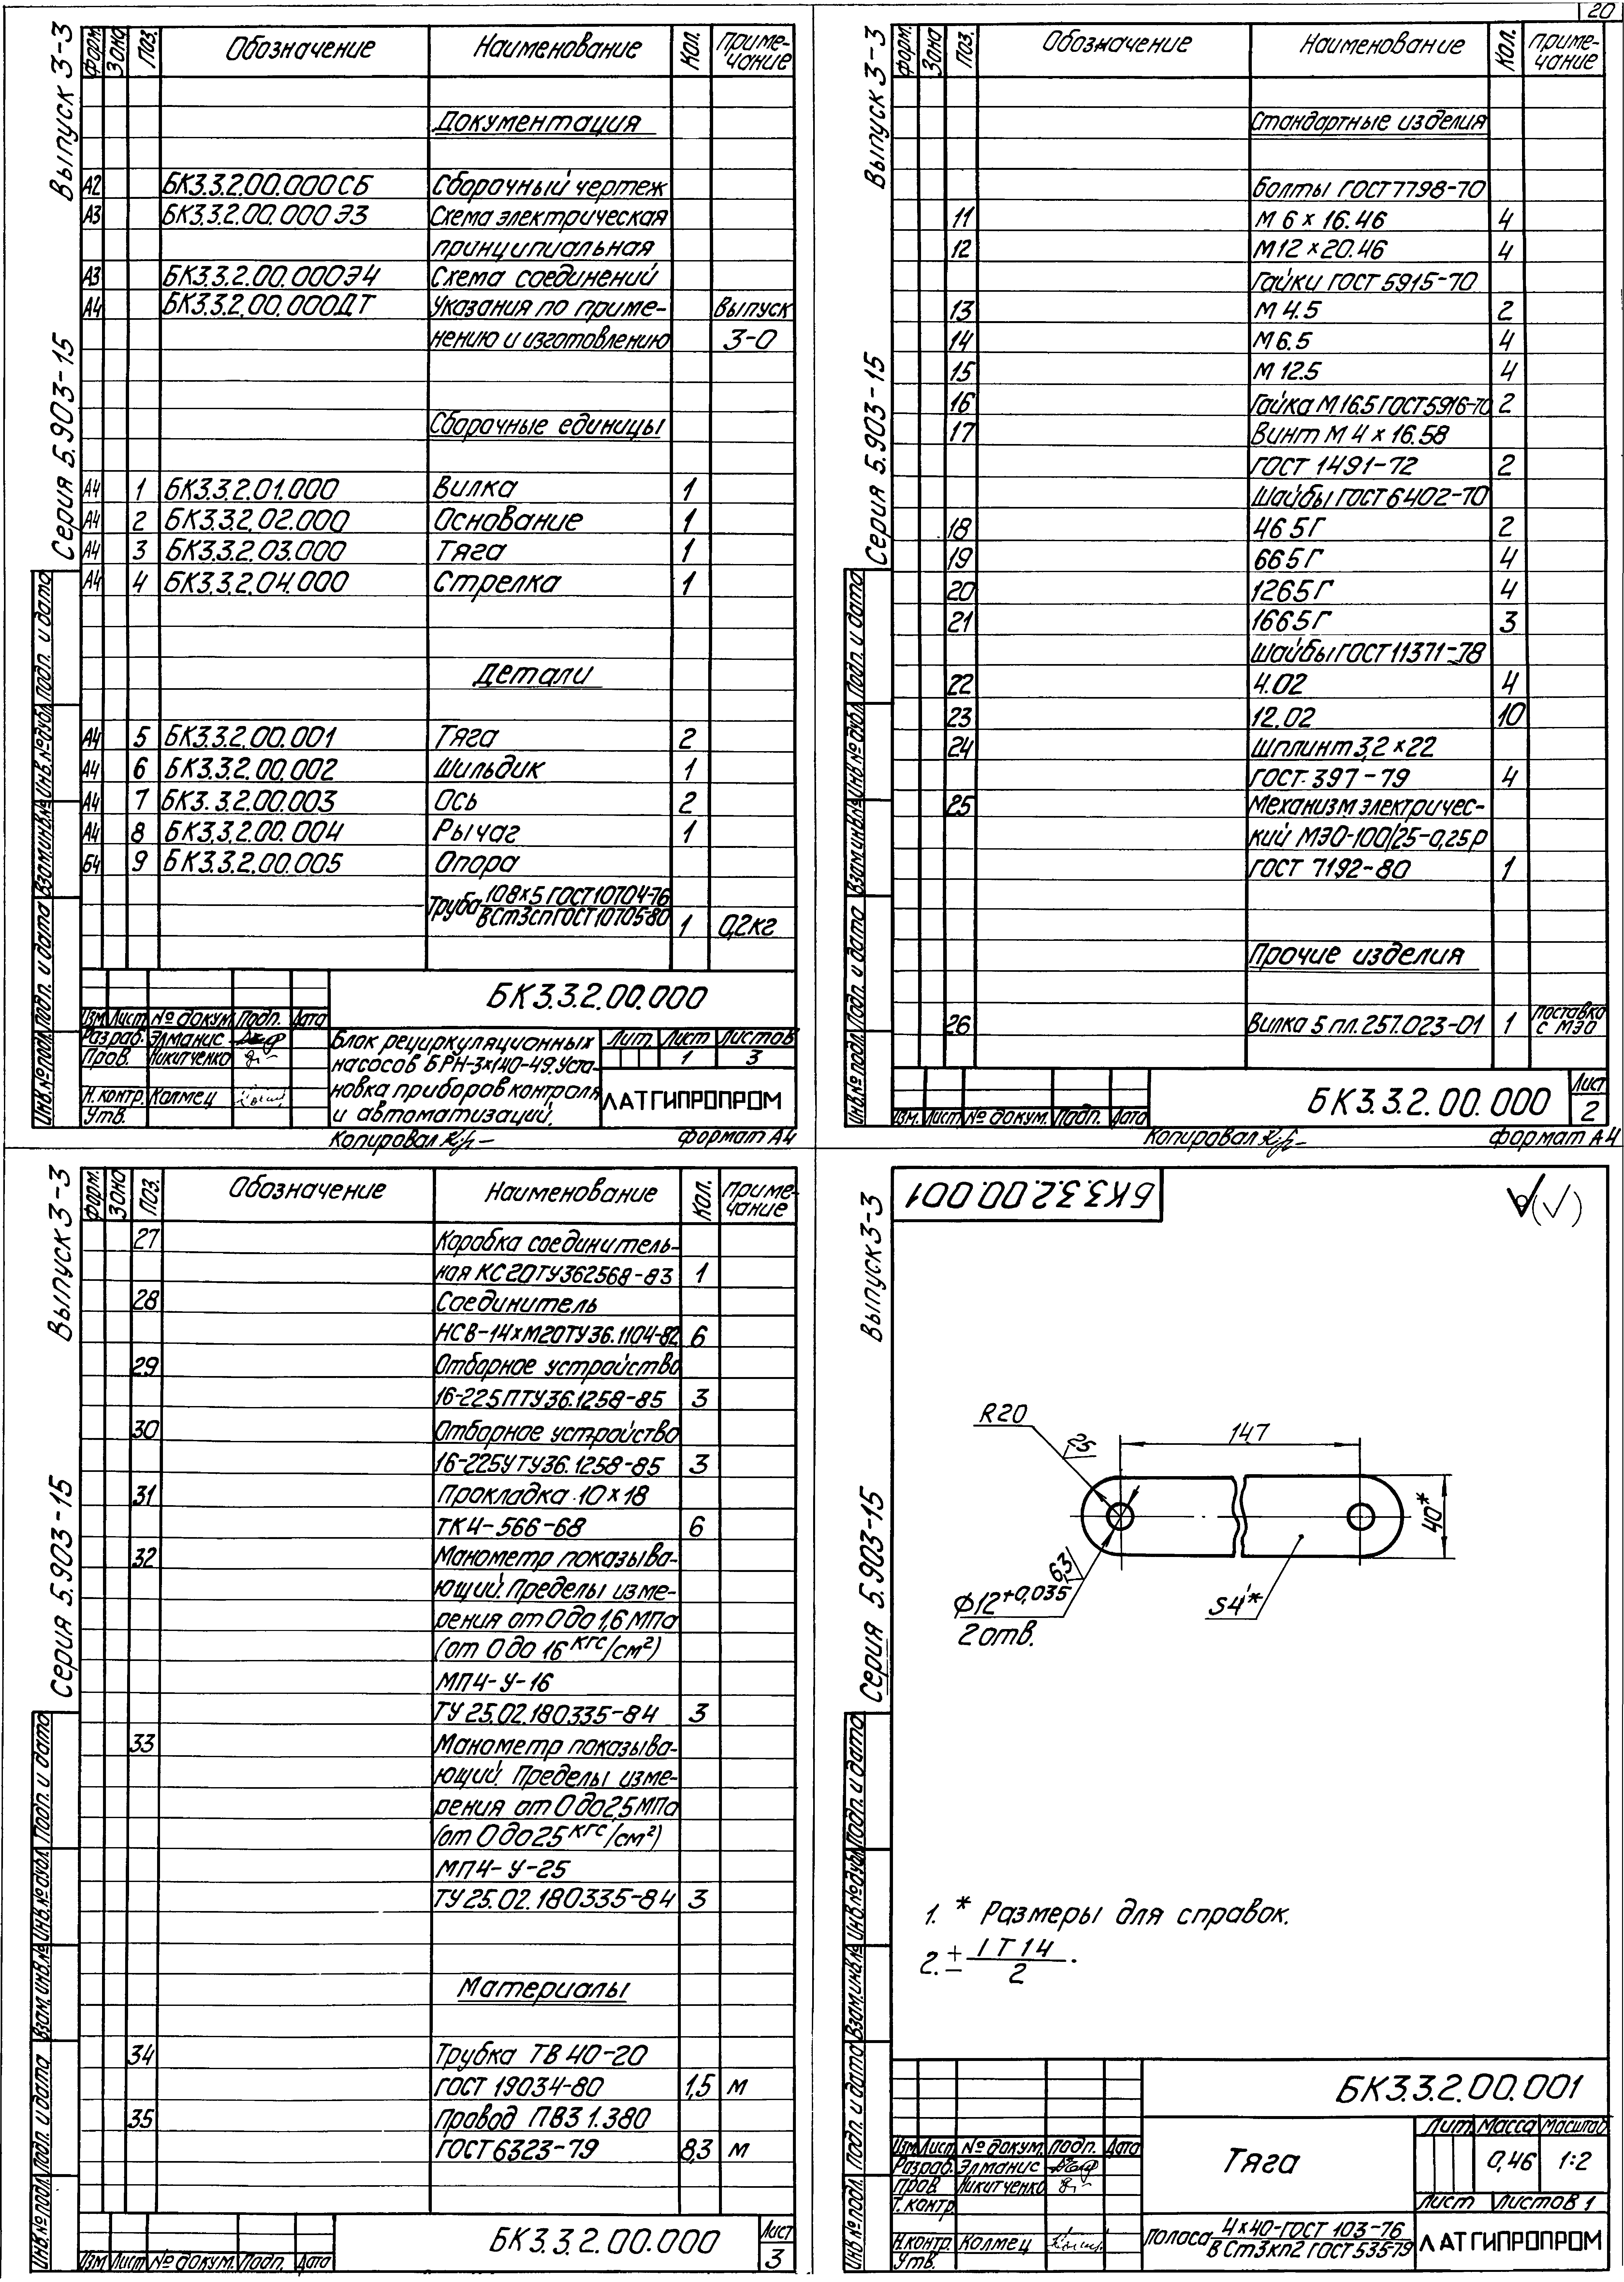 20
Выпуск 3-3
Серия 5.903-15
Форм. Зона Поз. Обозначение Наименование Кол. Приме-
чание
Документация
А2 БК3.3.2.00.000СБ Сборочный чертеж
А3 БК3.3.2.00.000Э3 Схема электрическая
принципиальная
А3 БК3.3.2.00.000Э4 Схема соединений
А4 БК3.3.2.00.000ДТ Указания по приме- Выпуск
нению и изготовлению 3-0
Сборочные единицы
А4 1 БК3.3.2.01.000 Вилка 1
А4 2 БК3.3.2.02.000 Основание 1
А4 3 БК3.3.2.03.000 Тяга 1
А4 4 БК3.3.2.04.000 Стрелка 1
Детали
А4 5 БК3.3.2.00.001 Тяга 2
А4 6 БК3.3.2.00.002 Шильдик 1
А4 7 БК3.3.2.00.003 Ось 2
А4 8 БК3.3.2.00.004 Рычаг 1
Б4 9 БК3.3.2.00.005 Опора
Труба 108х5 ГОСТ10704-76
ВСт3сп ГОСТ10705-80 1 0,2кг
Инв.№подл. Подп. и дата Взам.инв.№ Инв.№дубл. Подп. и дата
БК3.3.2.00.000
Изм Лист № докум. Подп. Дата
Разраб. Элманис
Пров. Никитченко
Н.контр. Колмец
Утв.
Блок рециркуляционных
насосов БРН-3х140-49. Уста-
новка приборов контроля
и автоматизаций.
Лит. Лист Листов
1 3
ЛАТГИПРОПРОМ
Копировал Формат А4
Выпуск 3-3
Серия 5.903-15
Форм. Зона Поз. Обозначение Наименование Кол. Приме-
чание
Стандартные изделия
Болты ГОСТ7798-70
11 М 6 х 16.46 4
12 М12 х20.46 4
Гайки ГОСТ 5915-70
13 М 4.5 2
14 М 6.5 4
15 М 12.5 4
16 Гайка М 16.5 ГОСТ5916-70 2
17 Винт М 4 х 16.58
ГОСТ 1491-72 2
Шайбы ГОСТ 6402-70
18 4 65Г 2
19 6 65Г 4
20 12 65Г 4
21 16 65Г 3
Шайбы ГОСТ 11371-78
22 4.02 4
23 12.02 10
24 Шплинт 3,2 х22
ГОСТ 397-79 4
25 Механизм электричес-
кий МЭО-100/25-0,25Р
ГОСТ 7192-80 1
Прочие изделия
26 Вилка 5 пл.257.023-01 1 Поставка
с МЭО
Инв.№подл. Подп. и дата Взам.инв.№ Инв.№дубл. Подп. и дата
Изм. Лист № докум. Подп. Дата
БК3.3.2.00.000
Лист
2
Копировал Формат А4
Выпуск 3-3
Серия 5.903-15
Форм. Зона Поз. Обозначение Наименование Кол. Приме-
чание
27 Коробка соединитель-
ная КС20ТУ362568-83 1
28 Соединитель
НСВ-14хМ20ТУ36.1104-82 6
29 Отборное устройство
16-225ПТУ36.1258-85 3
30 Отборное устройство
16-225УТУ36.1258-85 3
31 Прокладка 10 х 18
ТК4-566-68 6
32 Манометр показыва-
ющий. Пределы изме-
рения от 0 до 1,6 МПа
(от 0 до 16 кгс/см²)
МП4-У-16
ТУ 25.02.180335-84 3
33 Манометр показыва-
ющий. Пределы изме-
рения от 0 до 2,5 МПа
(от 0 до 25 кгс/см²)
МП4-У-25
ТУ 25.02.180335-84 3
Материалы
34 Трубка ТВ 40-20
ГОСТ 19034-80 1,5 м
35 Провод ПВ3 1.380
ГОСТ 6323-79 8,3 м
Инв.№подл. Подп. и дата Взам.инв.№ Инв.№дубл. Подп. и дата
Изм Лист № докум. Подп. Дата
БК3.3.2.00.000
Лист
3
Выпуск 3-3
Серия 5.903-15
БК3.3.2.00.001
R20
25
147
40*
63
Ф12+0,035
2 отв.
S4*
1. * Размеры для справок.
2. ± IT14
2 .
Инв.№подл. Подп. и дата Взам.инв.№ Инв.№дубл. Подп. и дата
БК3.3.2.00.001
Изм Лист № докум. Подп. Дата
Разраб. Элманис
Пров. Никитченко
Т.контр.
Н.контр. Колмец
Утв.
Тяга
Лит. Масса Масштаб
0,46 1:2
Лист Листов 1
Полоса 4х40-ГОСТ 103-76
ВСт3кп2 ГОСТ 535-79
ЛАТГИПРОПРОМ